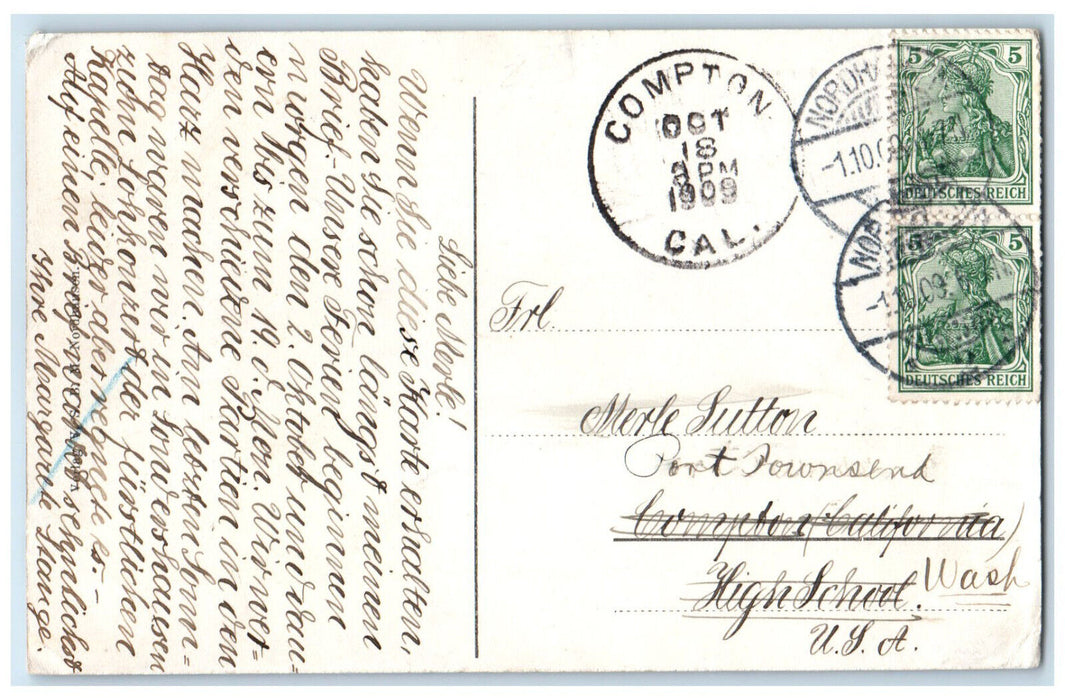 Liebe Merle!
Wenn Sie diese Karte erhalten,
haben Sie schon längst meinen
Brief. Unsere Ferien beginnen
morgen den 2. Oktober und dau-
ern bis zum 19. d. Mon. Wir wer-
den verschiedene Partien in den
Harz machen. Am letzten Sonn-
tag waren wir in Sondershausen
zum Lohkonzert der fürstlichen
Kapelle, leider aber regnete es.
Auf einen Brief von Ihnen sehnlichst
Ihre Margarete Stange.
Nordhausen.
COMPTON
OCT
18
PM
1909
CAL.
NORDHAUSEN
-1.10.09
5 5
DEUTSCHES REICH
NORDHAUSEN
-1.10.09
5 5
DEUTSCHES REICH
Frl.
Merle Sutton
Port Townsend
Compton (California)
High School. Wash
U. S. A.